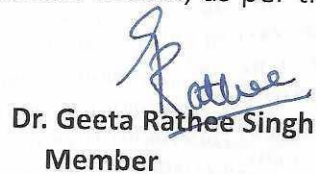 as per
Rathee
Dr. Geeta Rathee Singh
Member